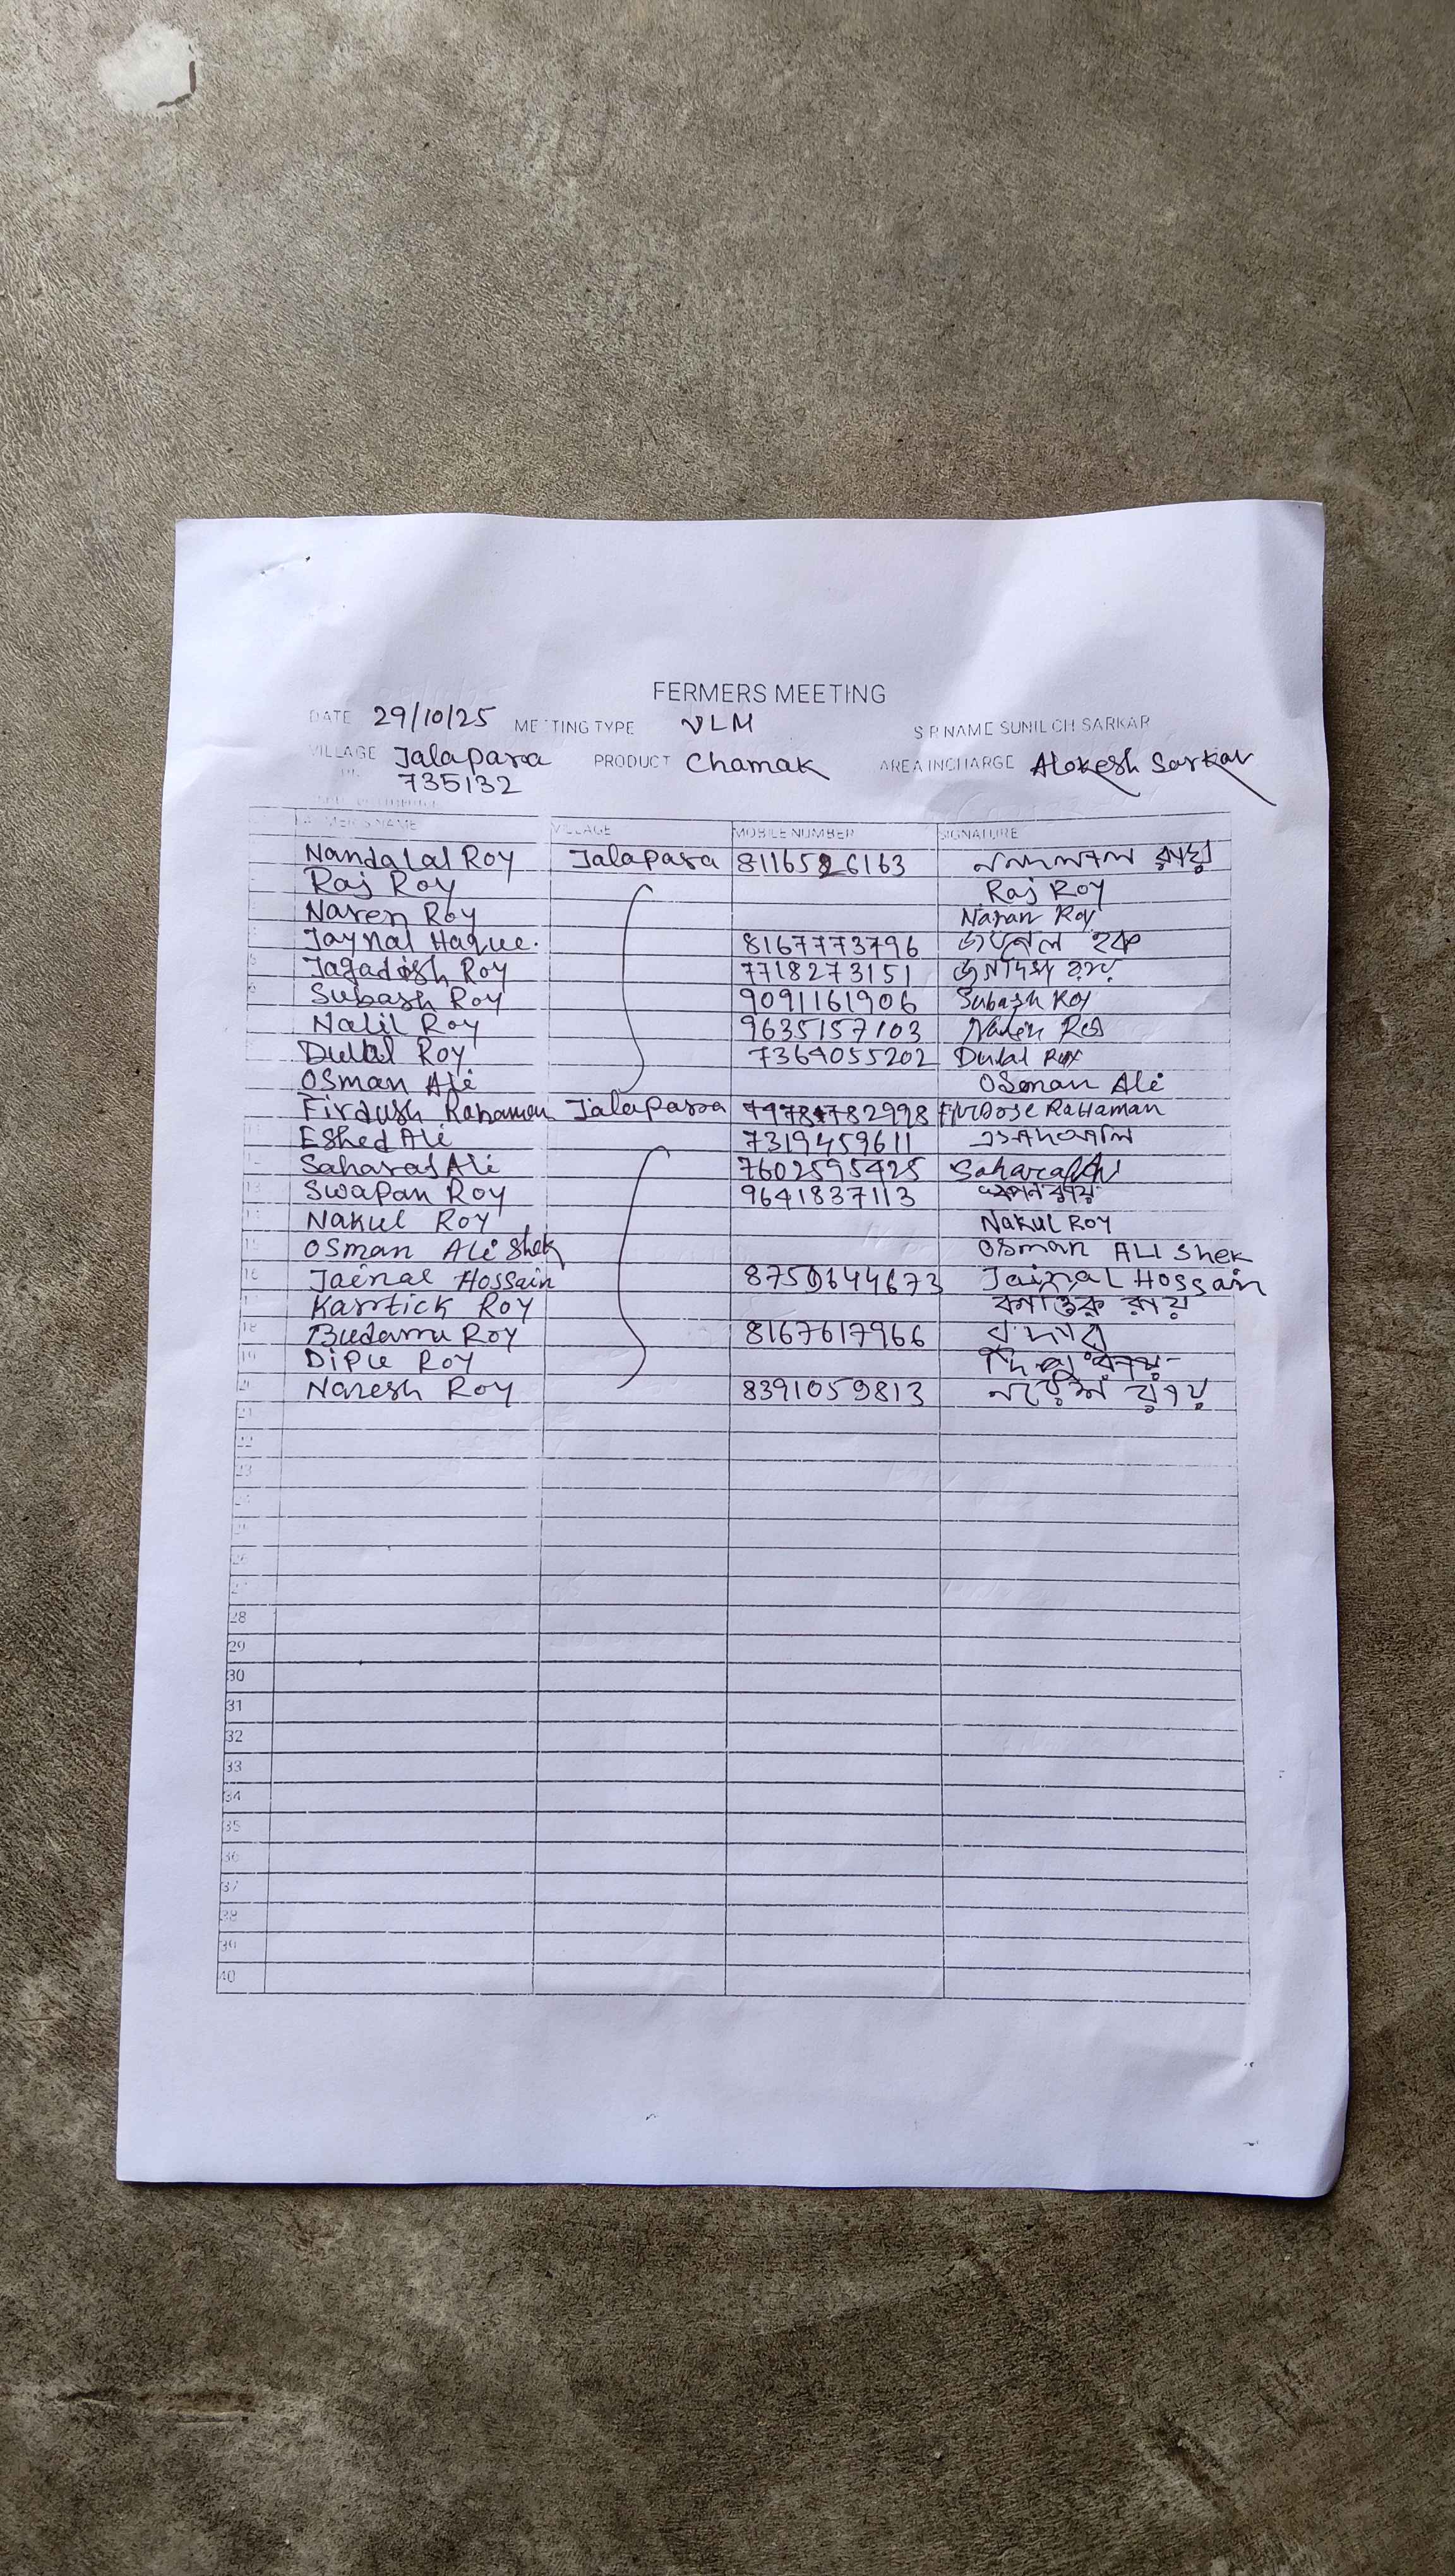 FERMERS MEETING
DATE 29/10/25 MEETING TYPE VLM S R NAME SUNIL CH SARKAR
VILLAGE Jalapara PRODUCT Chamak AREA INCHARGE Alokesh Sarkar
735132
FARMERS NAME VILLAGE MOBILE NUMBER SIGNATURE
Nandalal Roy Jalapara 8116526163 নন্দলাল রায়
Raj Roy Raj Roy
Naren Roy Naran Roy
Jaynal Haque. 8167773796 হক
5 Jagadish Roy 7718273151
6 Subash Roy 9091161906 Subash Roy
Nalil Roy 9635157103
Dulal Roy 7364055202 Dulal Roy
OSman Ali OSman Ali
Firdush Rahaman Jalapara Firdose Rahaman
11 Eshed Ali 7319459611
12 Saharad Ali 7602595425
13 Swapan Roy 9641837113 স্বপন রায়
14 Nakul Roy Nakul Roy
15 OSman Ali Shek OSman ALI Shek
16 Jainal Hossain Jainal Hossain
17 Karrtick Roy রায়
18 Budarru Roy 8167617966
19 Diplu Roy
Naresh Roy 8391059813 নরেশ রায়
21
22
23
24
25
26
27
28
29
30
31
32
33
34
35
36
37
38
39
40